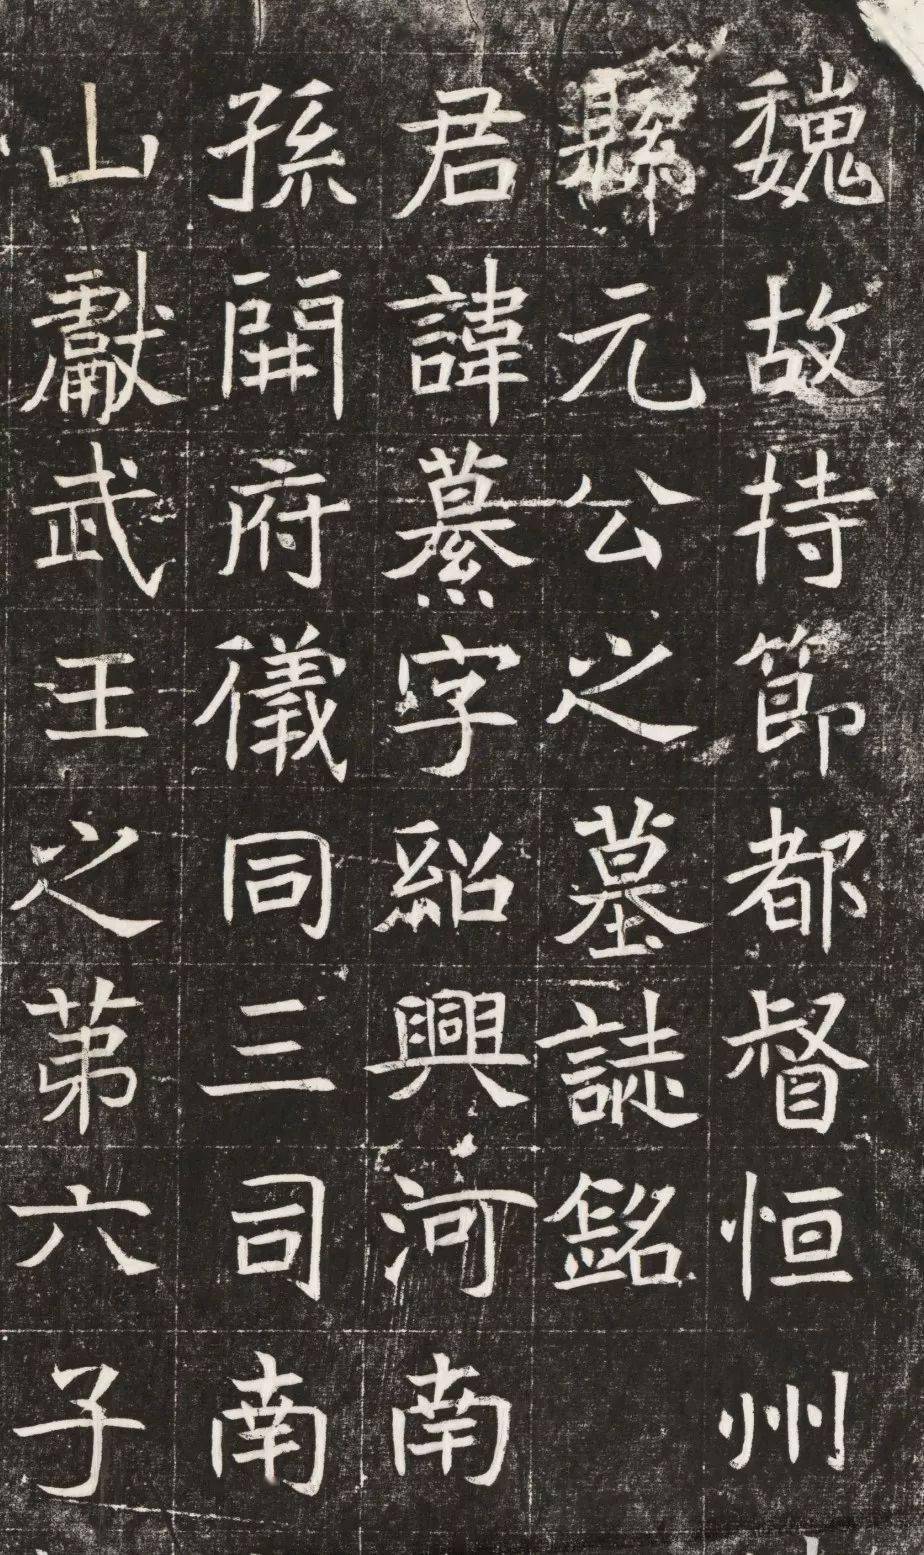 魏故持節都督恒州
縣元公之墓誌銘
君諱纂字紹興河南
孫開府儀同三司南
山獻武王之第六子